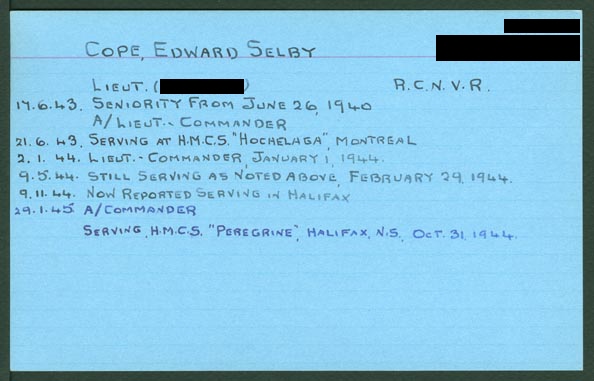 COPE, EDWARD SELBY
LIEUT. ( ) R.C.N.V.R.
17.6.43. SENIORITY FROM JUNE 26, 1940
A/LIEUT.-COMMANDER
21.6.43. SERVING AT H.M.C.S. "HOCHELAGA", MONTREAL
2.1.44. LIEUT.-COMMANDER, JANUARY 1, 1944.
9.5.44. STILL SERVING AS NOTED ABOVE, FEBRUARY 29, 1944.
9.11.44. NOW REPORTED SERVING IN HALIFAX
29.1.45. A/COMMANDER
SERVING, H.M.C.S. "PEREGRINE", HALIFAX, N.S., OCT. 31, 1944.